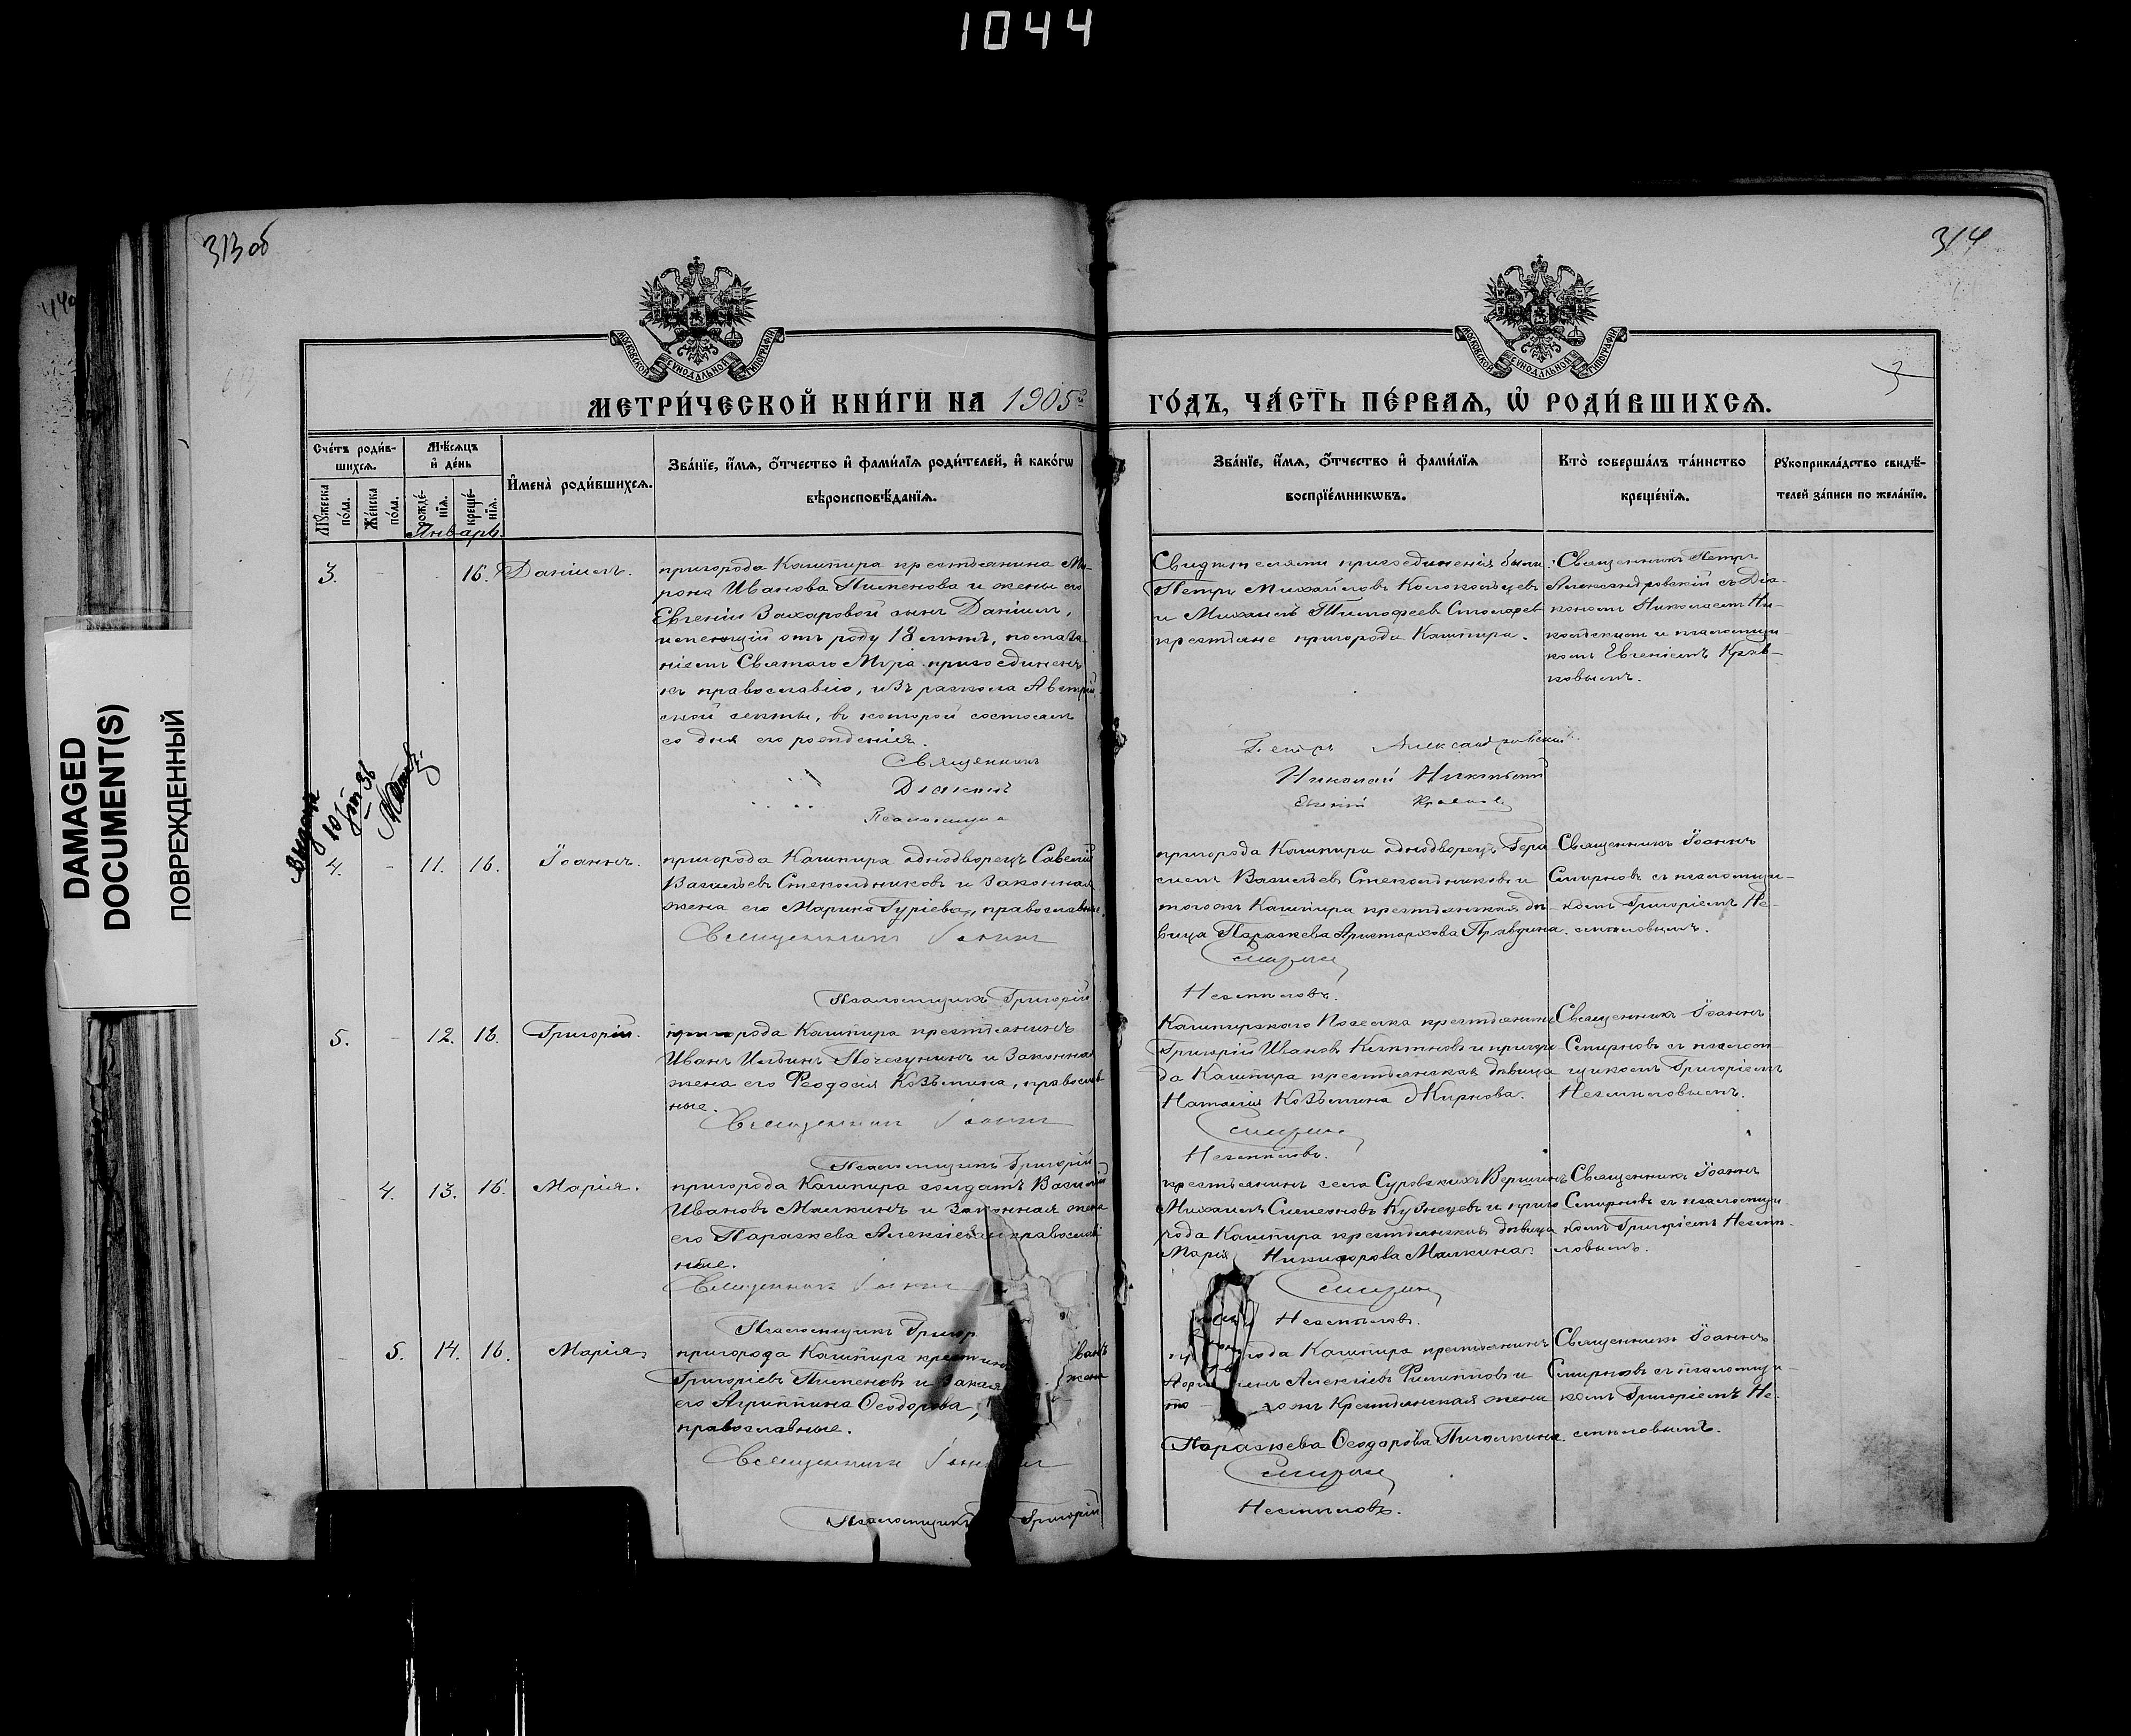 1044
313 об
314
МОСКОВСКОЙ СѴНОДАЛЬНОЙ ТИПОГРАФІИ
МОСКОВСКОЙ СѴНОДАЛЬНОЙ ТИПОГРАФІИ
3
МЕТРИ́ЧЕСКОЙ КНИ́ГИ НА 1905 го
ГО́ДЪ, ЧА́СТЬ ПЕ́РВАѦ, Ѡ҆ РОДИ́ВШИХСѦ.
Сче́тъ роди́в-
шихсѧ.
Мꙋ́жеска по́ла.
Же́нска по́ла.
Мѣ́сѧцъ
и҆ де́нь
рожде́-нїѧ.
креще́-нїѧ.
И҆мена̀ роди́вшихсѧ.
Зва́нїе, и҆́мѧ, ѻ҆́тчество и҆ фами́лїѧ роди́телей, и҆ како́гѡ
вѣроисповѣ́данїѧ.
Зва́нїе, и҆́мѧ, ѻ҆́тчество и҆ фами́лїѧ
воспрїе́мникѡвъ.
Кто̀ соверша́лъ та́инство
креще́нїѧ.
Рꙋкоприкла́дство свидѣ́-
телей за́писи по жела́нїю.
Январь.
DAMAGED
DOCUMENT(S)
ПОВРЕЖДЕННЫЙ
3. - - 16. Даніилъ.
пригорода Кашпира крестьянина Ми-
рона Иванова Пименова и жены его
Евгеніи Захаровой сынъ Даніилъ,
имеющій отъ роду 18 лѣтъ, помаза-
ніемъ Святаго Мѵра присоединенъ
къ православію, изъ раскола Австрій-
ской секты, въ которой состоялъ
со дня его рожденія.
Священникъ
Діаконъ
Псаломщикъ
Свидѣтелями присоединенія были:
Петръ Михайловъ Колокольцевъ
и Михаилъ Тимофеевъ Столяровъ
крестьяне пригорода Кашпира.
Священникъ Петръ
Александровскій съ Діа-
кономъ Николаемъ Ни-
кольскимъ и псаломщи-
комъ Евгеніемъ Крав-
ковымъ.
Петръ Александровскій
Николай Никольскій
Евгеній
4. - 11. 16. Іоаннъ.
пригорода Кашпира однодворецъ Савелій
Васильевъ Стекольниковъ и законная
жена его Марина Гуріева, православные.
Священникъ Іоаннъ
Псаломщикъ Григорій
пригорода Кашпира однодворецъ Гера-
симъ Васильевъ Стекольниковъ и
того жъ Кашпира крестьянская дѣ-
вица Параскева Аристархова Правдина.
Смирновъ
Несмѣловъ.
Священникъ Іоаннъ
Смирновъ съ псаломщи-
комъ Григоріемъ Не-
смѣловымъ.
5. - 12. 16. Григорій.
пригорода Кашпира крестьянинъ
Иванъ Ильинъ Почекунинъ и законная
жена его Ѳеодосія Козьмина, православ-
ные.
Священникъ Іоаннъ
Псаломщикъ Григорій
Кашпирскаго Поселка крестьянинъ
Григорій Ивановъ и приго-
да Кашпира крестьянская дѣвица
Наталія Козьмина Жирнова.
Смирновъ
Несмѣловъ.
Священникъ Іоаннъ
Смирновъ съ псалом-
щикомъ Григоріемъ
Несмѣловымъ.
- 4. 13. 16. Марія.
пригорода Кашпира солдатъ Василій
Ивановъ Малкинъ и законная жена
его Параскева Алексіева православ-
ные.
Священникъ Іоаннъ
Псаломщикъ Григор
крестьянинъ села Суровскихъ Вершинъ
Михаилъ Симеоновъ Кузнецевъ и приго-
рода Кашпира крестьянская дѣвица
Марія Никифорова Малкина.
Смирновъ
Несмѣловъ.
Священникъ Іоаннъ
Смирновъ съ псаломщи-
комъ Григоріемъ Несмѣ-
ловымъ.
- 5. 14. 16. Марія.
пригорода Кашпира крестьянинъ Иванъ
Григорьевъ Пименовъ и законная жена
его Агриппина Ѳеодорова,
православные.
Священникъ Іоаннъ
Псаломщикъ Григорій
пригорода Кашпира крестьянинъ
Алексіевъ Филиппов и
жъ Крестьянская жена
Параскева Ѳеодорова
Смирновъ
Несмѣловъ.
Священникъ Іоаннъ
Смирновъ съ псаломщи-
комъ Григоріемъ Не-
смѣловымъ.